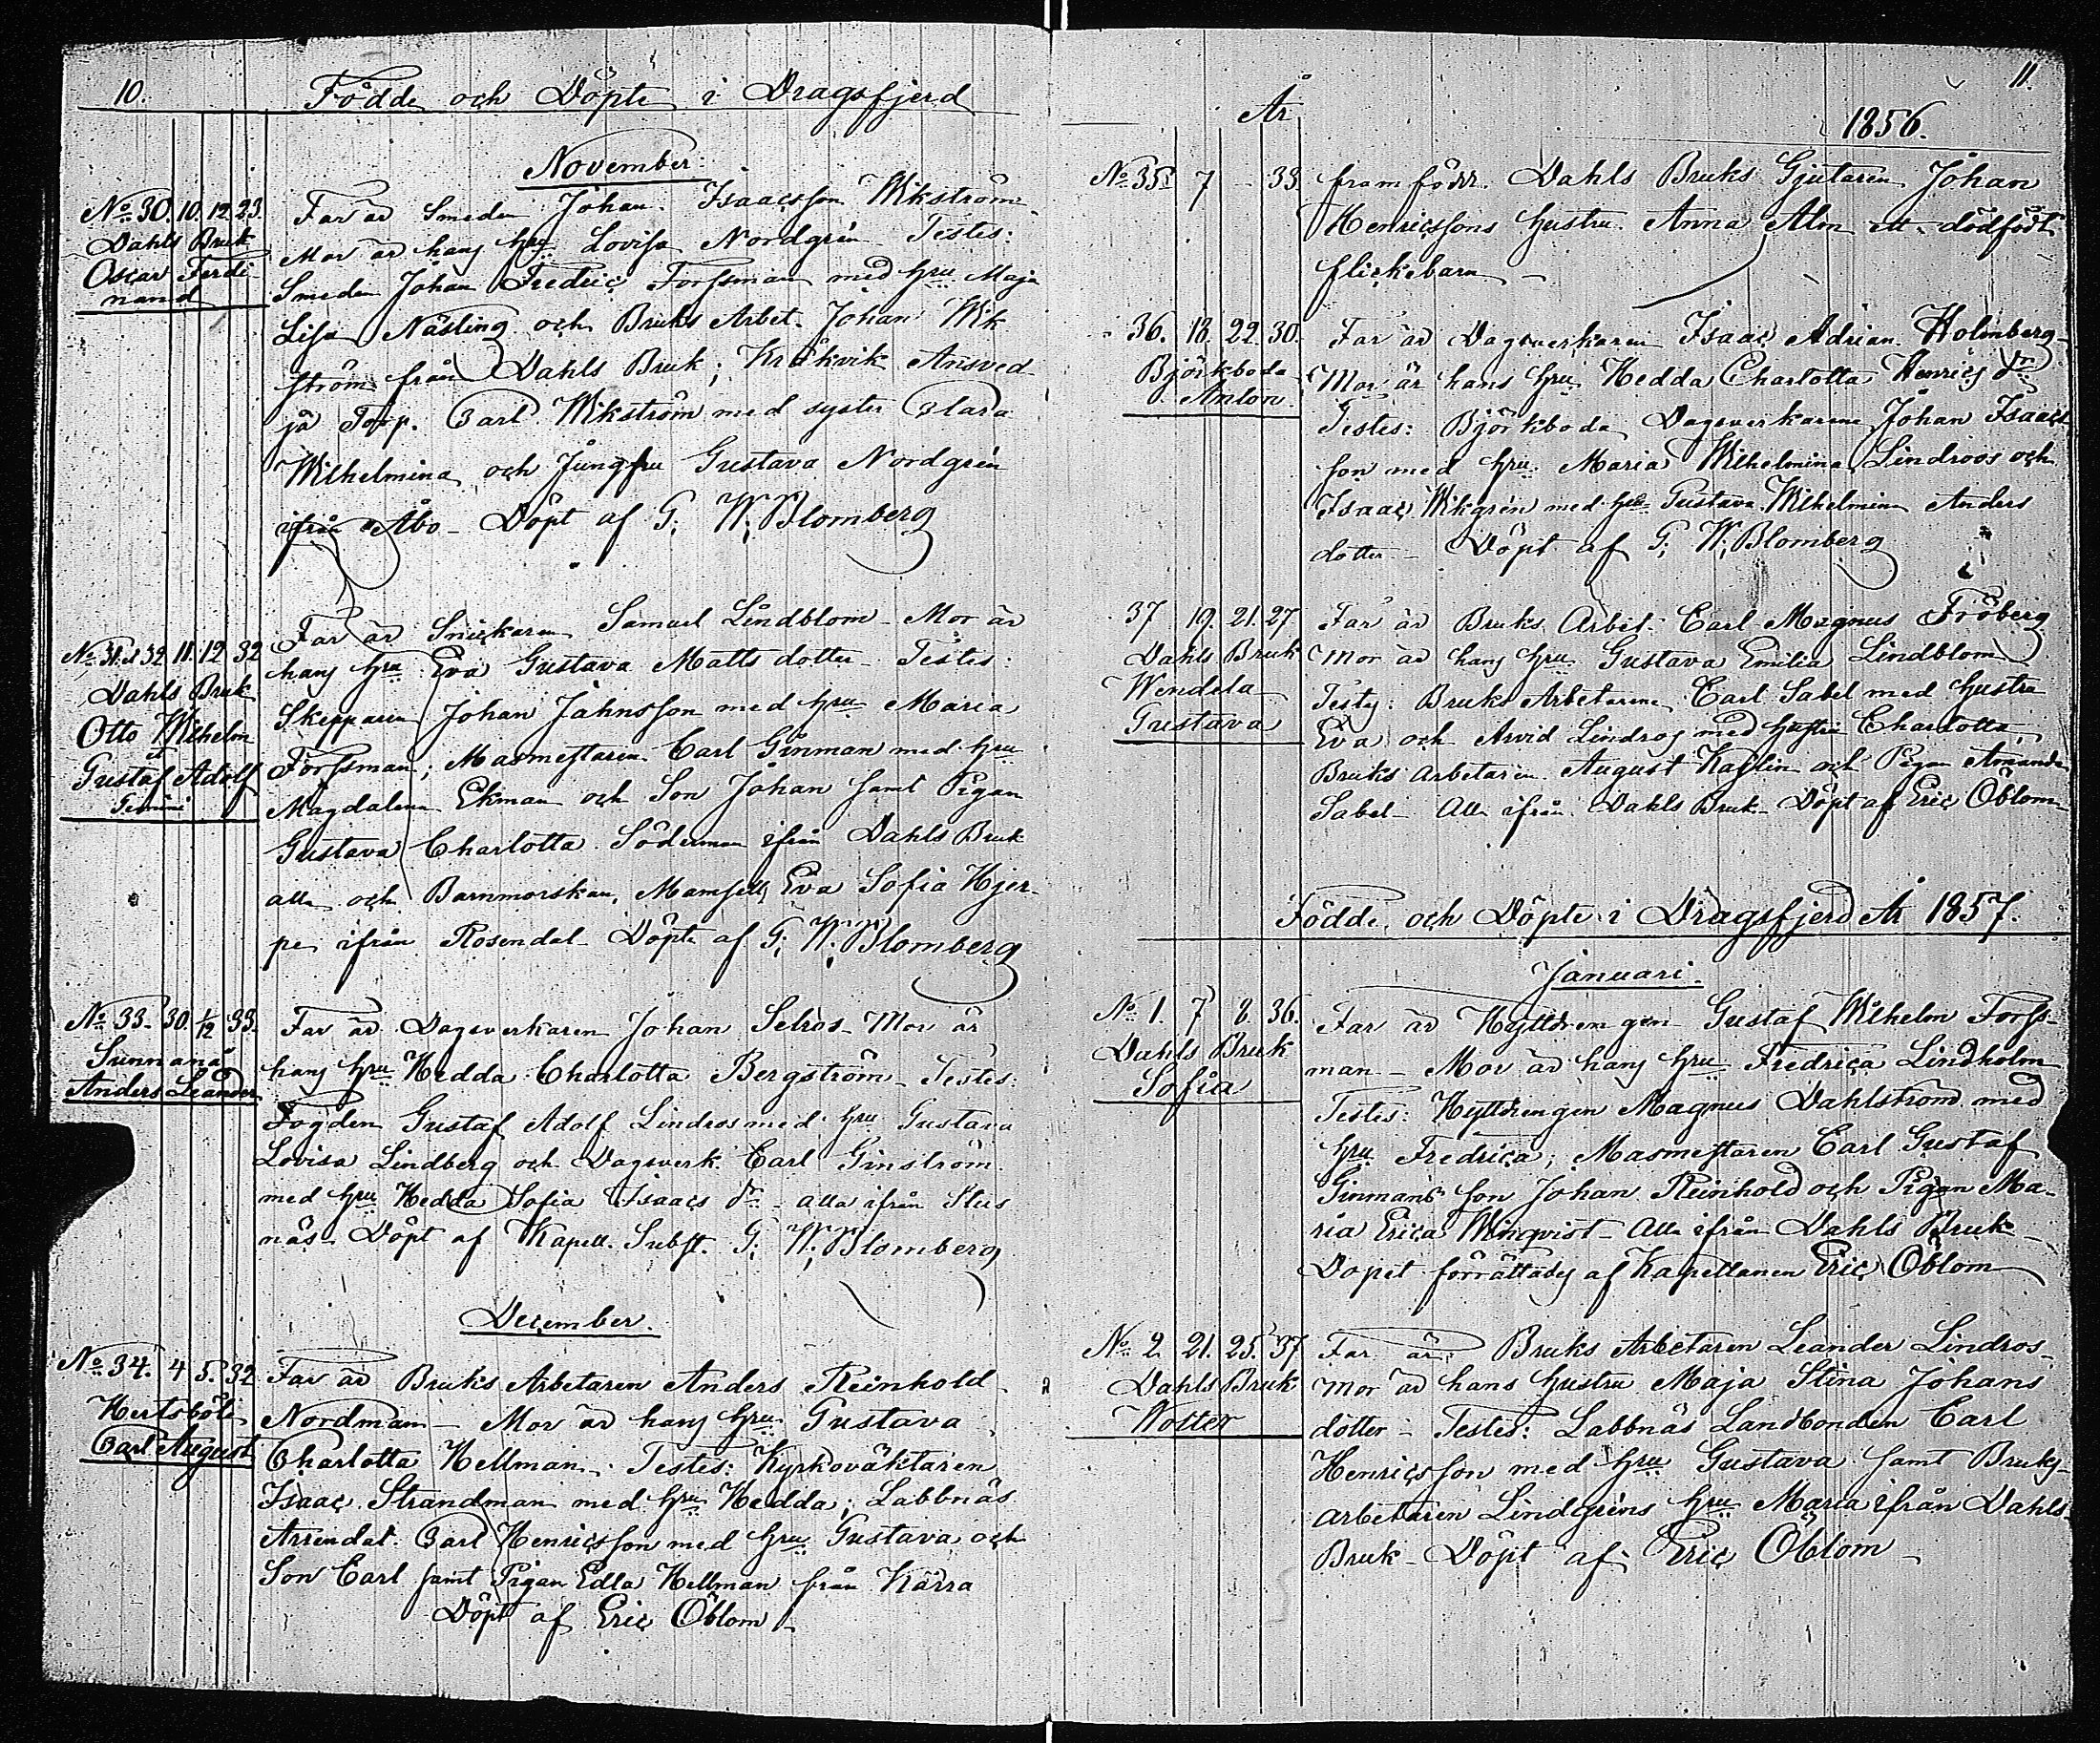 10.
Födde och Döpte i Dragsfjerd
November.
No. 30. 10. 12. 23.
Dahls Bruk
Oscar Ferdi-
nand
Far är Smeden Johan Isaacsson Wikström
Mor är hans hru Lovisa Nordgrén Testes:
Smeden Johan Fredric Forssman med hru Maja
Lisa Näsling och Bruks Arbet. Johan Wik
ström från Dahls Bruk; Kråkvik Ansved
ja Torp. Carl Wikström med syster Clara
Wilhelmina och Jungfru Gustava Nordgrén
ifrån Åbo - Döpt af G. W. Blomberg
No. 31. et 32. 11. 12. 32
Dahls Bruk
Otto Wilhelm
et
Gustaf Adolf
Gemini
Far är Snickaren Samuel Lindblom - Mor är
hans hru Eva Gustava Mattsdotter - Testes:
Skepparen Johan Jahnsson med hru Maria
Forssman; Masmestaren Carl Ginman med hru
Magdalena Ekman och Son Johan samt Pigan
Gustava Charlotta Söderman ifrån Dahls Bruk
alla och Barnmorskan, Mamsell Eva Sofia Hjer-
pe ifrån Rosendal - Döpte af G. W. Blomberg
No. 33. 30. 1/12 33.
Sunnanå
Anders Leander
Far är Dagsverkaren Johan Selros - Mor är
hans hru Hedda Charlotta Bergström - Testes:
Fogden Gustaf Adolf Lindros med hru Gustava
Lovisa Lindberg och Dagsverk. Carl Ginström
med hru Hedda Sofia Isaacs dr - alla ifrån
näs - Döpt af Kapell. Subst. G. W. Blomberg
December.
No. 34. 4. 5. 32
Hertsböle
Carl August
Far är Bruks Arbetaren Anders Reinhold
Nordman - Mor är hans hru Gustava
Charlotta Hellman - Testes: Kyrkoväktaren
Isaac Strandman med hru Hedda; Labbnäs
Arrendat. Carl Henricsson med hru Gustava och
Son Carl samt Pigan Edla Hellman från Kärra
Döpt af Eric Öblom -
11.
År
1856.
No. 35. 7 - 33
framföddr. Dahls Bruks Gjutaren Johan
Henricssons hustru Anna Alm ett dödfödt
flickebarn -
36. 18. 22. 30.
Björkboda
Anton
Far är Dagsverkaren Isaac Adrian Holmberg
Mor är hans hru Hedda Charlotta Henrics dr
Testes: Björkboda Dagsverkarene Johan Isaacs
son med hru Maria Wilhelmina Lindroos och
Isaac Wikgrén med hru Gustava Wilhelmina Anders
dotter - Döpt af G. W. Blomberg
37 19. 21. 27
Dahls Bruk
Wendela
Gustava
Far är Bruks Arbet. Carl Magnus Fröberg
Mor är hans hru Gustava Emilia Lindblom
Testes: Bruks Arbetarene Carl Sabel med hustru
Eva och Arvid Lindros med hustru Charlotta,
Bruks arbetaren August Kaslin och Pigan Amanda
Sabel - Alla ifrån Dahls Bruk - Döpt af Eric Öblom
Födde och Döpte i Dragsfjerd År 1857.
Januari.
No. 1. 7 8. 36.
Dahls Bruk
Sofia
Far är Hyttdrengen Gustaf Wilhelm Forss-
man - Mor är hans hru Fredrica Lindholm
Testes: Hyttdrengen Magnus Dahlström med
hru Fredrica; Masmestaren Carl Gustaf
Ginmans son Johan Reinhold och Pigan Ma-
ria Erica Winqvist - Alla ifrån Dahls Bruk -
Dopet förrättades af Kapellanen Eric Öblom
No. 2. 21. 25. 37
Dahls Bruk
Wolter
Far är Bruks Arbetaren Leander Lindros -
Mor är hans hustru Maja Stina Johans
dotter - Testes: Labbnäs Landbonden Carl
Henricsson med hru Gustava samt Bruks-
arbetaren Lindgréns hru Maria ifrån Dahls
Bruk - Döpt af Eric Öblom -